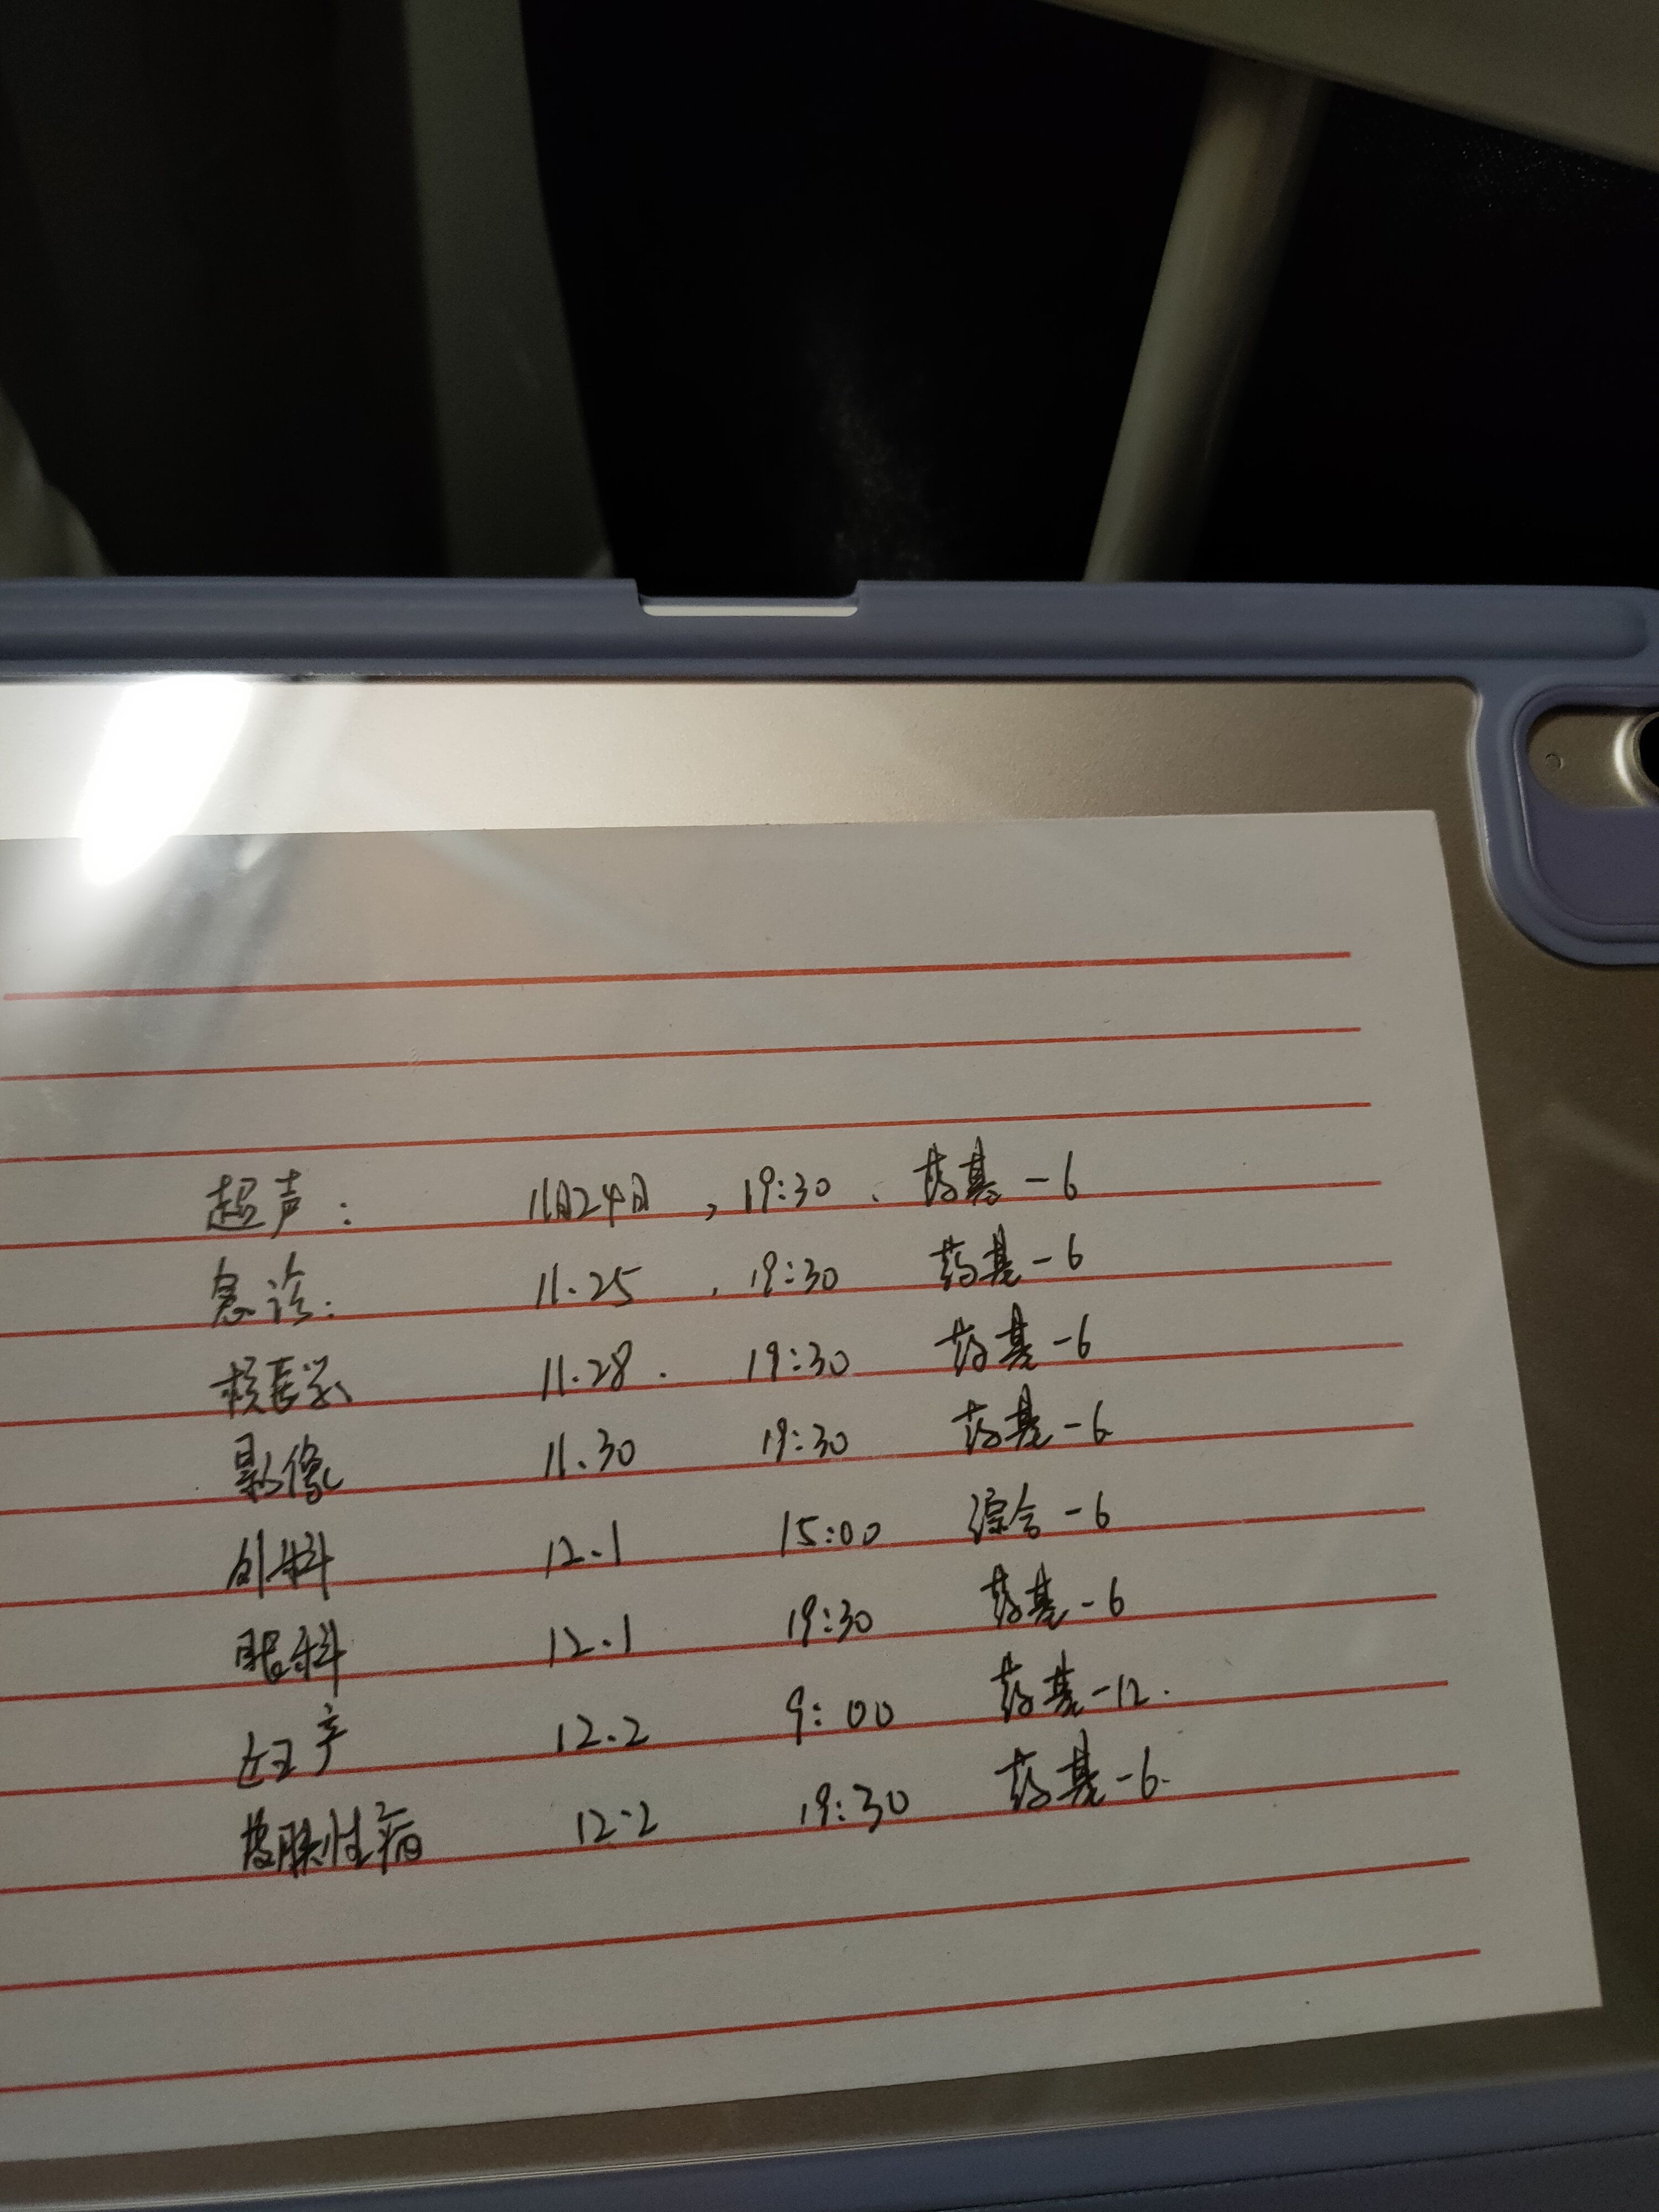 超声： 11月24日 ，19:30 、 药基-6
急诊： 11.25 ， 19:30 药基-6
核医学 11.28 . 19:30 药基-6
影像 11.30 19:30 药基-6
外科 12.1 15:00 综合-6
眼科 12.1 19:30 药基-6
妇产 12.2 9:00 药基-12.
皮肤性病 12.2 19:30 药基-6.